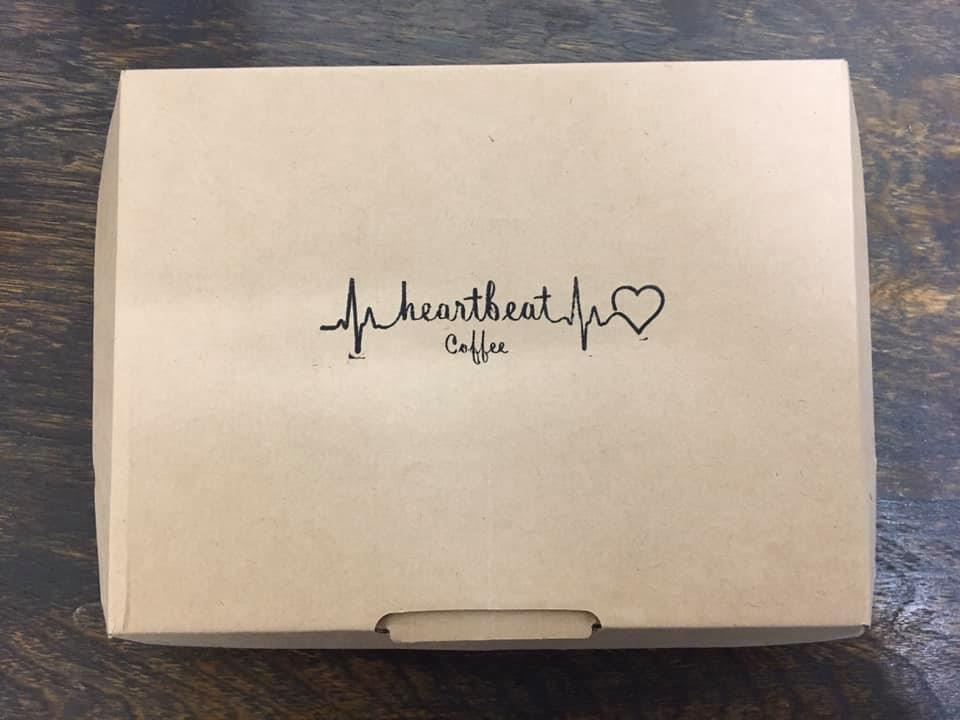 heartbeat
Coffee